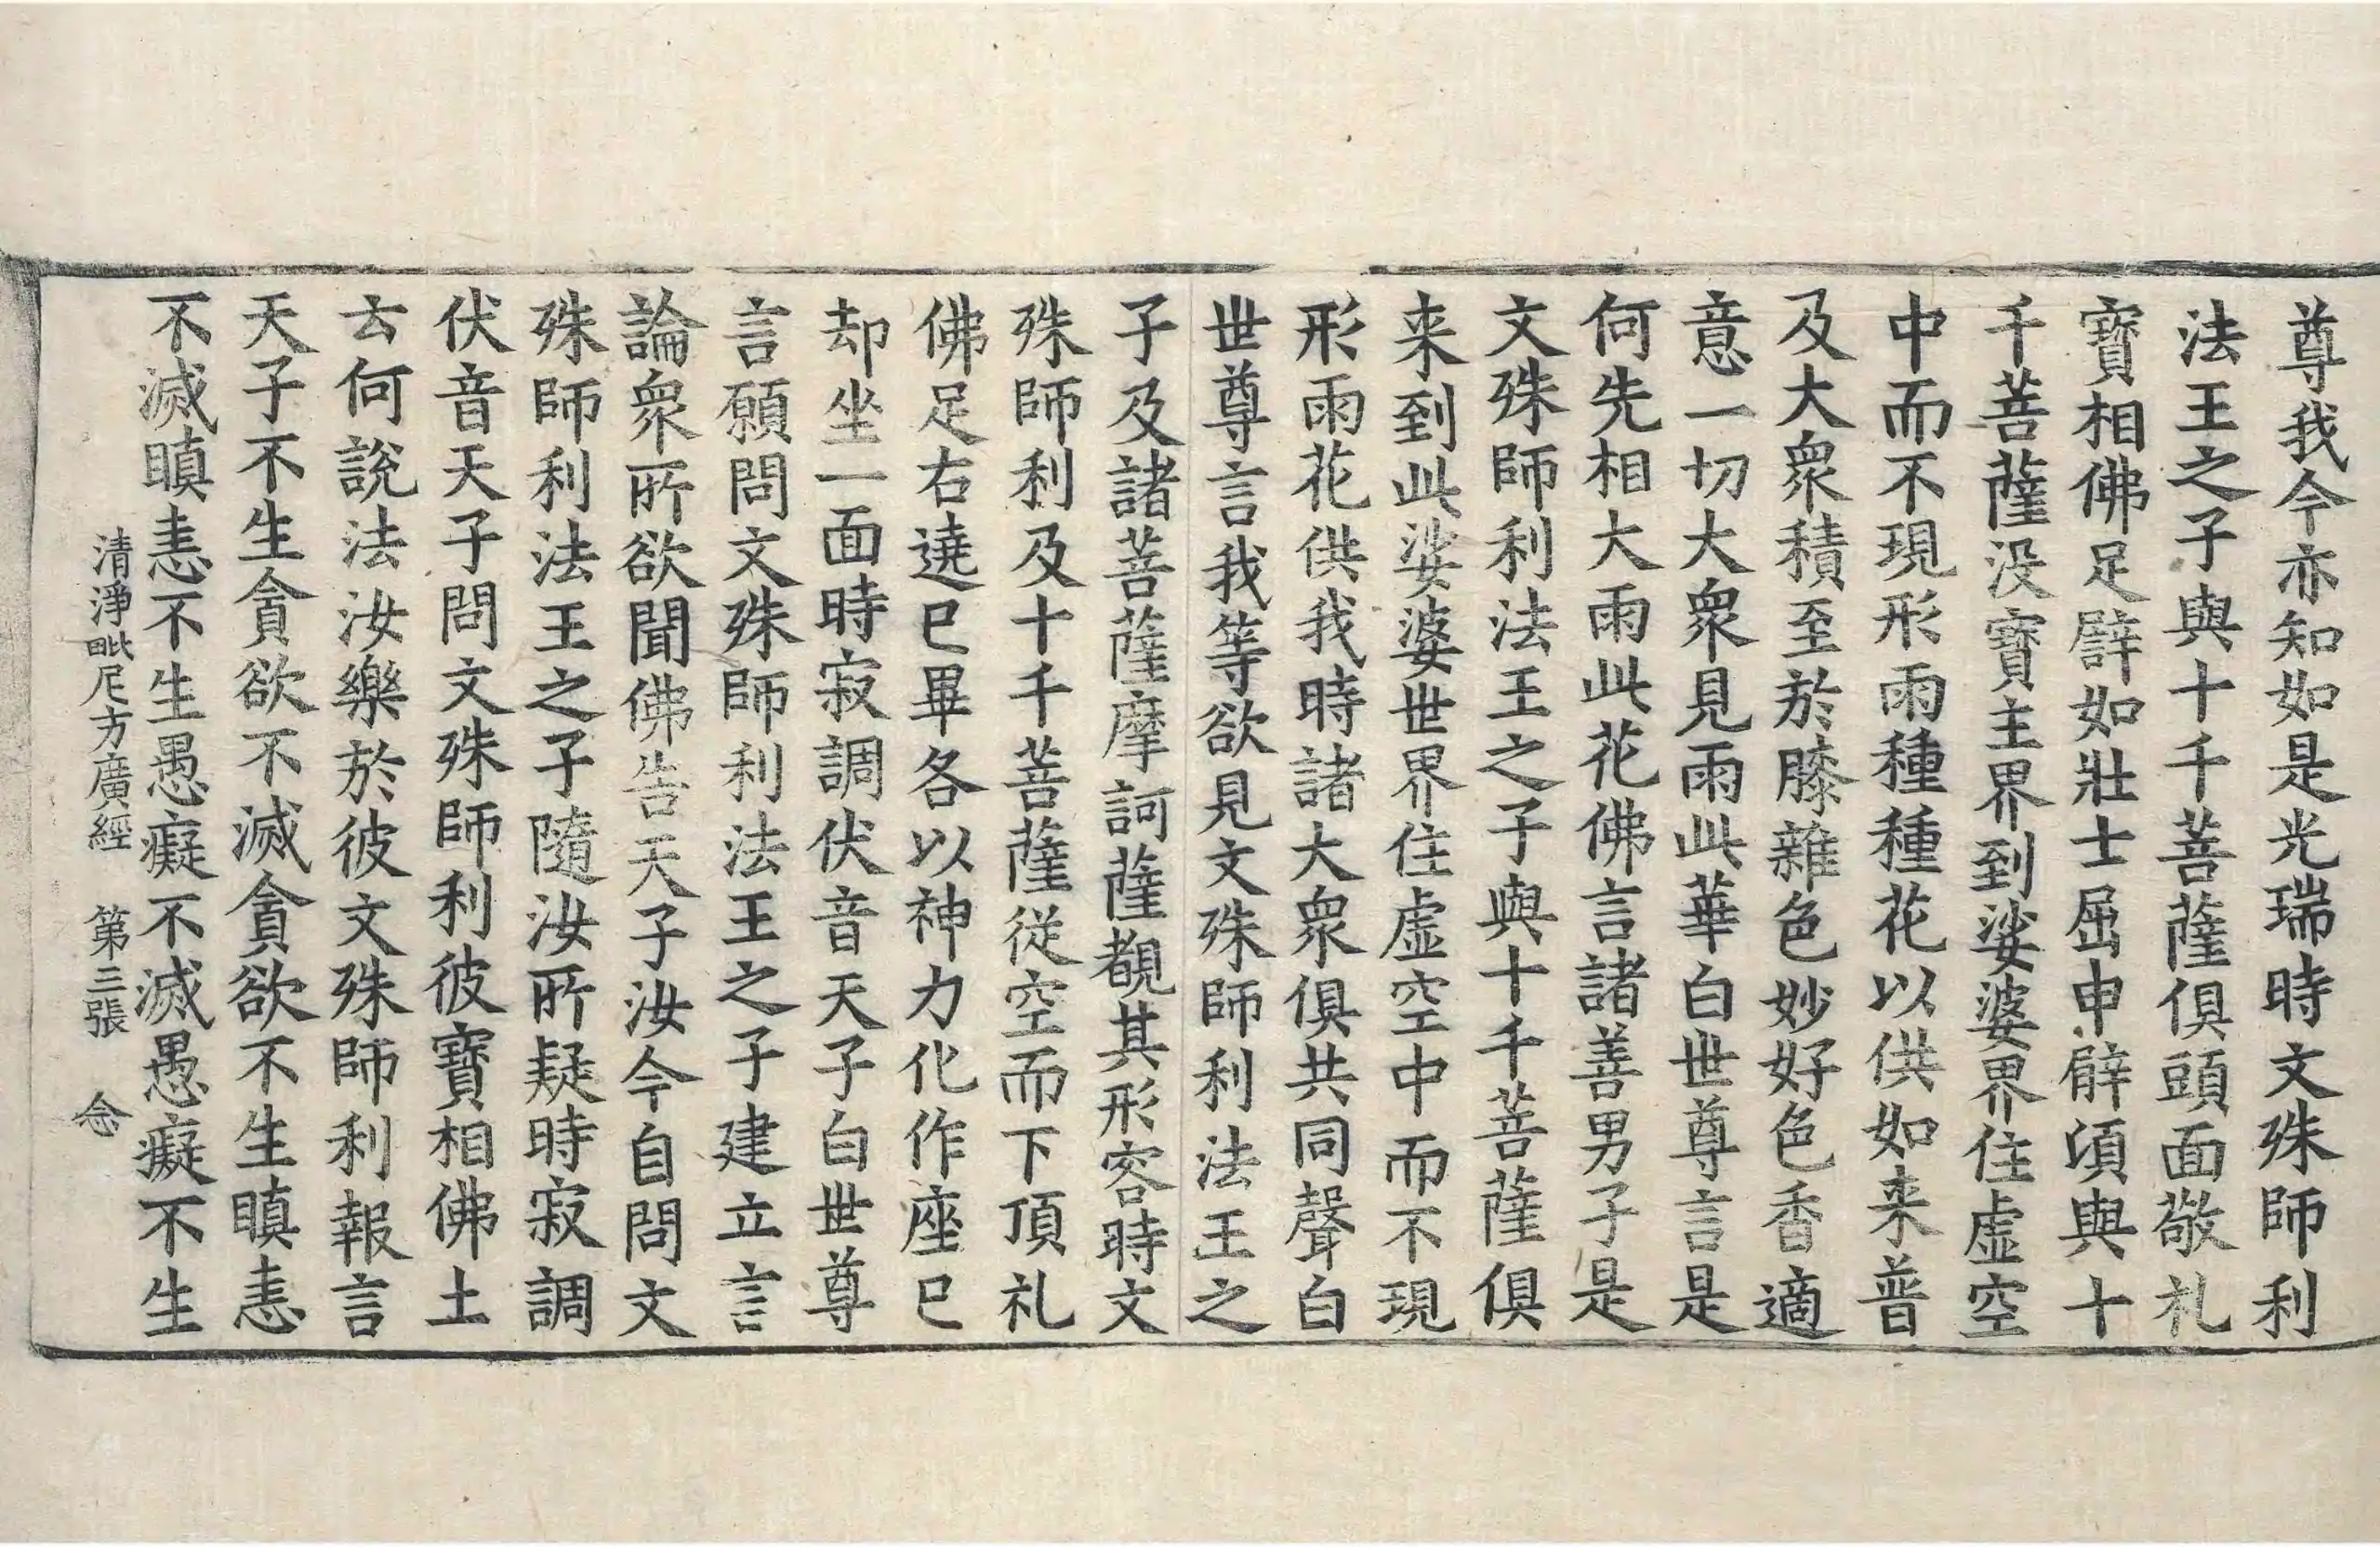 尊我今亦知如是光瑞時文殊師利
法王之子與十千菩薩俱頭面敬礼
寶相佛足譬如壯士屈申臂頃與十
千菩薩没寶主界到娑婆界住虛空
中而不現形雨種種花以供如来普
及大衆積至於膝雜色妙好色香適
意一切大衆見雨此華白世尊言是
何先相大雨此花佛言諸善男子是
文殊師利法王之子與十千菩薩俱
来到此娑婆世界住虛空中而不現
形雨花供我時諸大衆俱共同聲白
世尊言我等欲見文殊師利法王之
子及諸菩薩摩訶薩覩其形容時文
殊師利及十千菩薩從空而下頂礼
佛足右遶已畢各以神力化作座已
却坐一面時寂調伏音天子白世尊
言願問文殊師利法王之子建立言
論衆所欲聞佛告天子汝今自問文
殊師利法王之子隨汝所疑時寂調
伏音天子問文殊師利彼寶相佛土
云何說法汝樂於彼文殊師利報言
天子不生貪欲不滅貪欲不生瞋恚
不滅瞋恚不生愚癡不滅愚癡不生
清淨毗尼方廣經 第三張 念